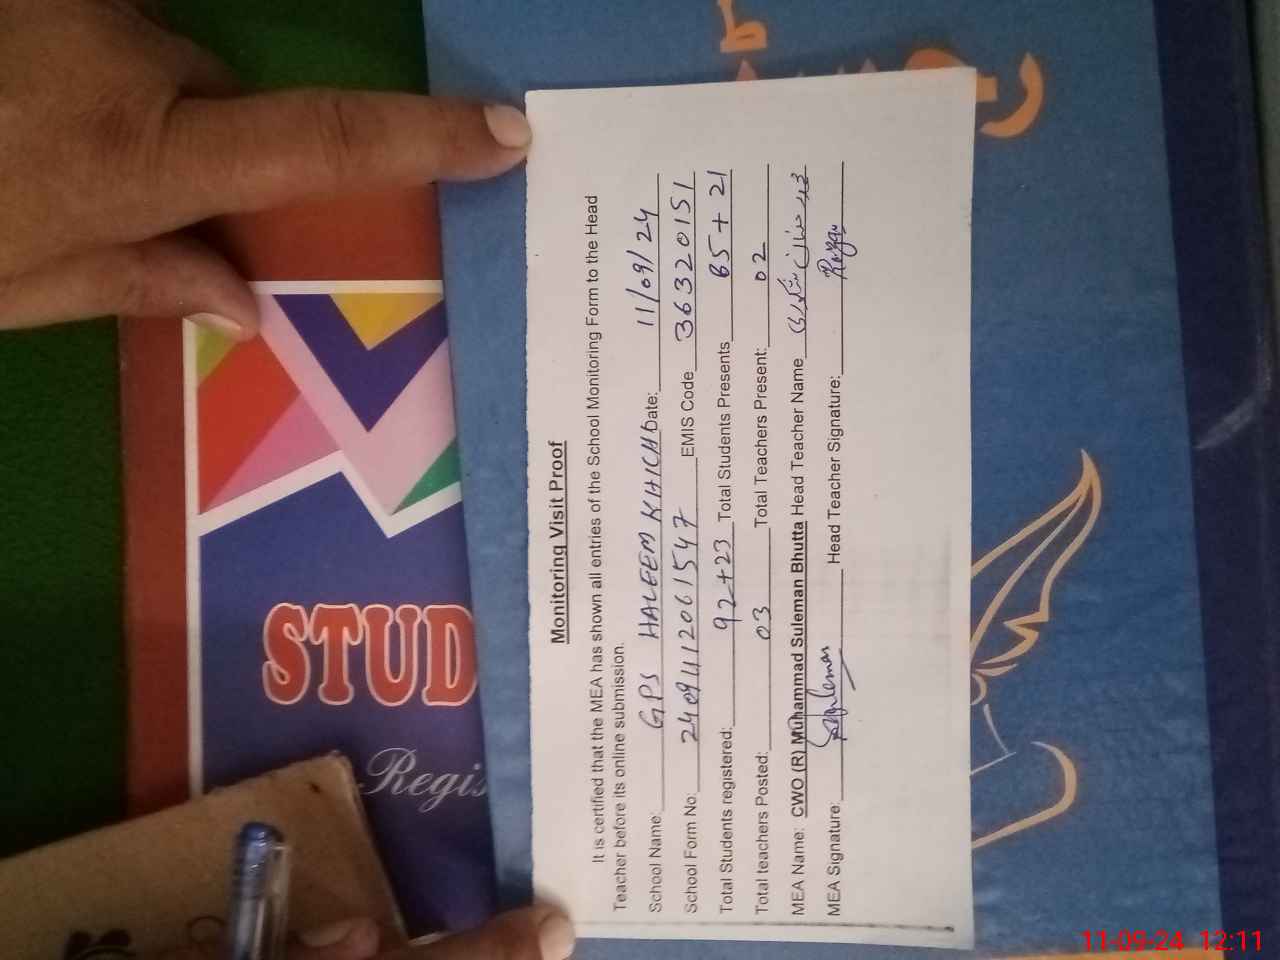 Monitoring Visit Proof
It is certified that the MEA has shown all entries of the School Monitoring Form to the Head
Teacher before its online submission.
School Name: GPS HALEEM KHICHI Date: 11/09/24
School Form No: 24094112061547 EMIS Code 36320151
Total Students registered: 92+23 Total Students Presents 65+21
Total teachers Posted: 03 Total Teachers Present: 02
MEA Name: CWO (R) Muhammad Suleman Bhutta Head Teacher Name
MEA Signature: Suleman Head Teacher Signature:
STUD
Regis
11-09-24 12:11